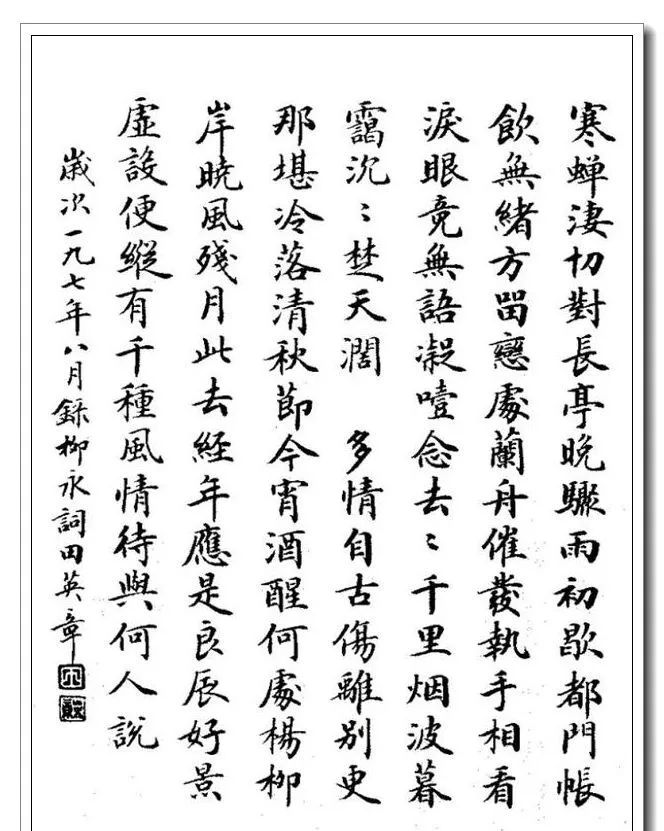 寒蟬淒切對長亭晚驟雨初歇都門帳
飲無緒方留戀處蘭舟催發執手相看
淚眼竟無語凝噎念去〻千里烟波暮
靄沉〻楚天濶　多情自古傷離別更
那堪冷落清秋節今宵酒醒何處楊柳
岸曉風殘月此去經年應是良辰好景
虛設便縱有千種風情待與何人說
歲次一九七年八月錄柳永詞田英章